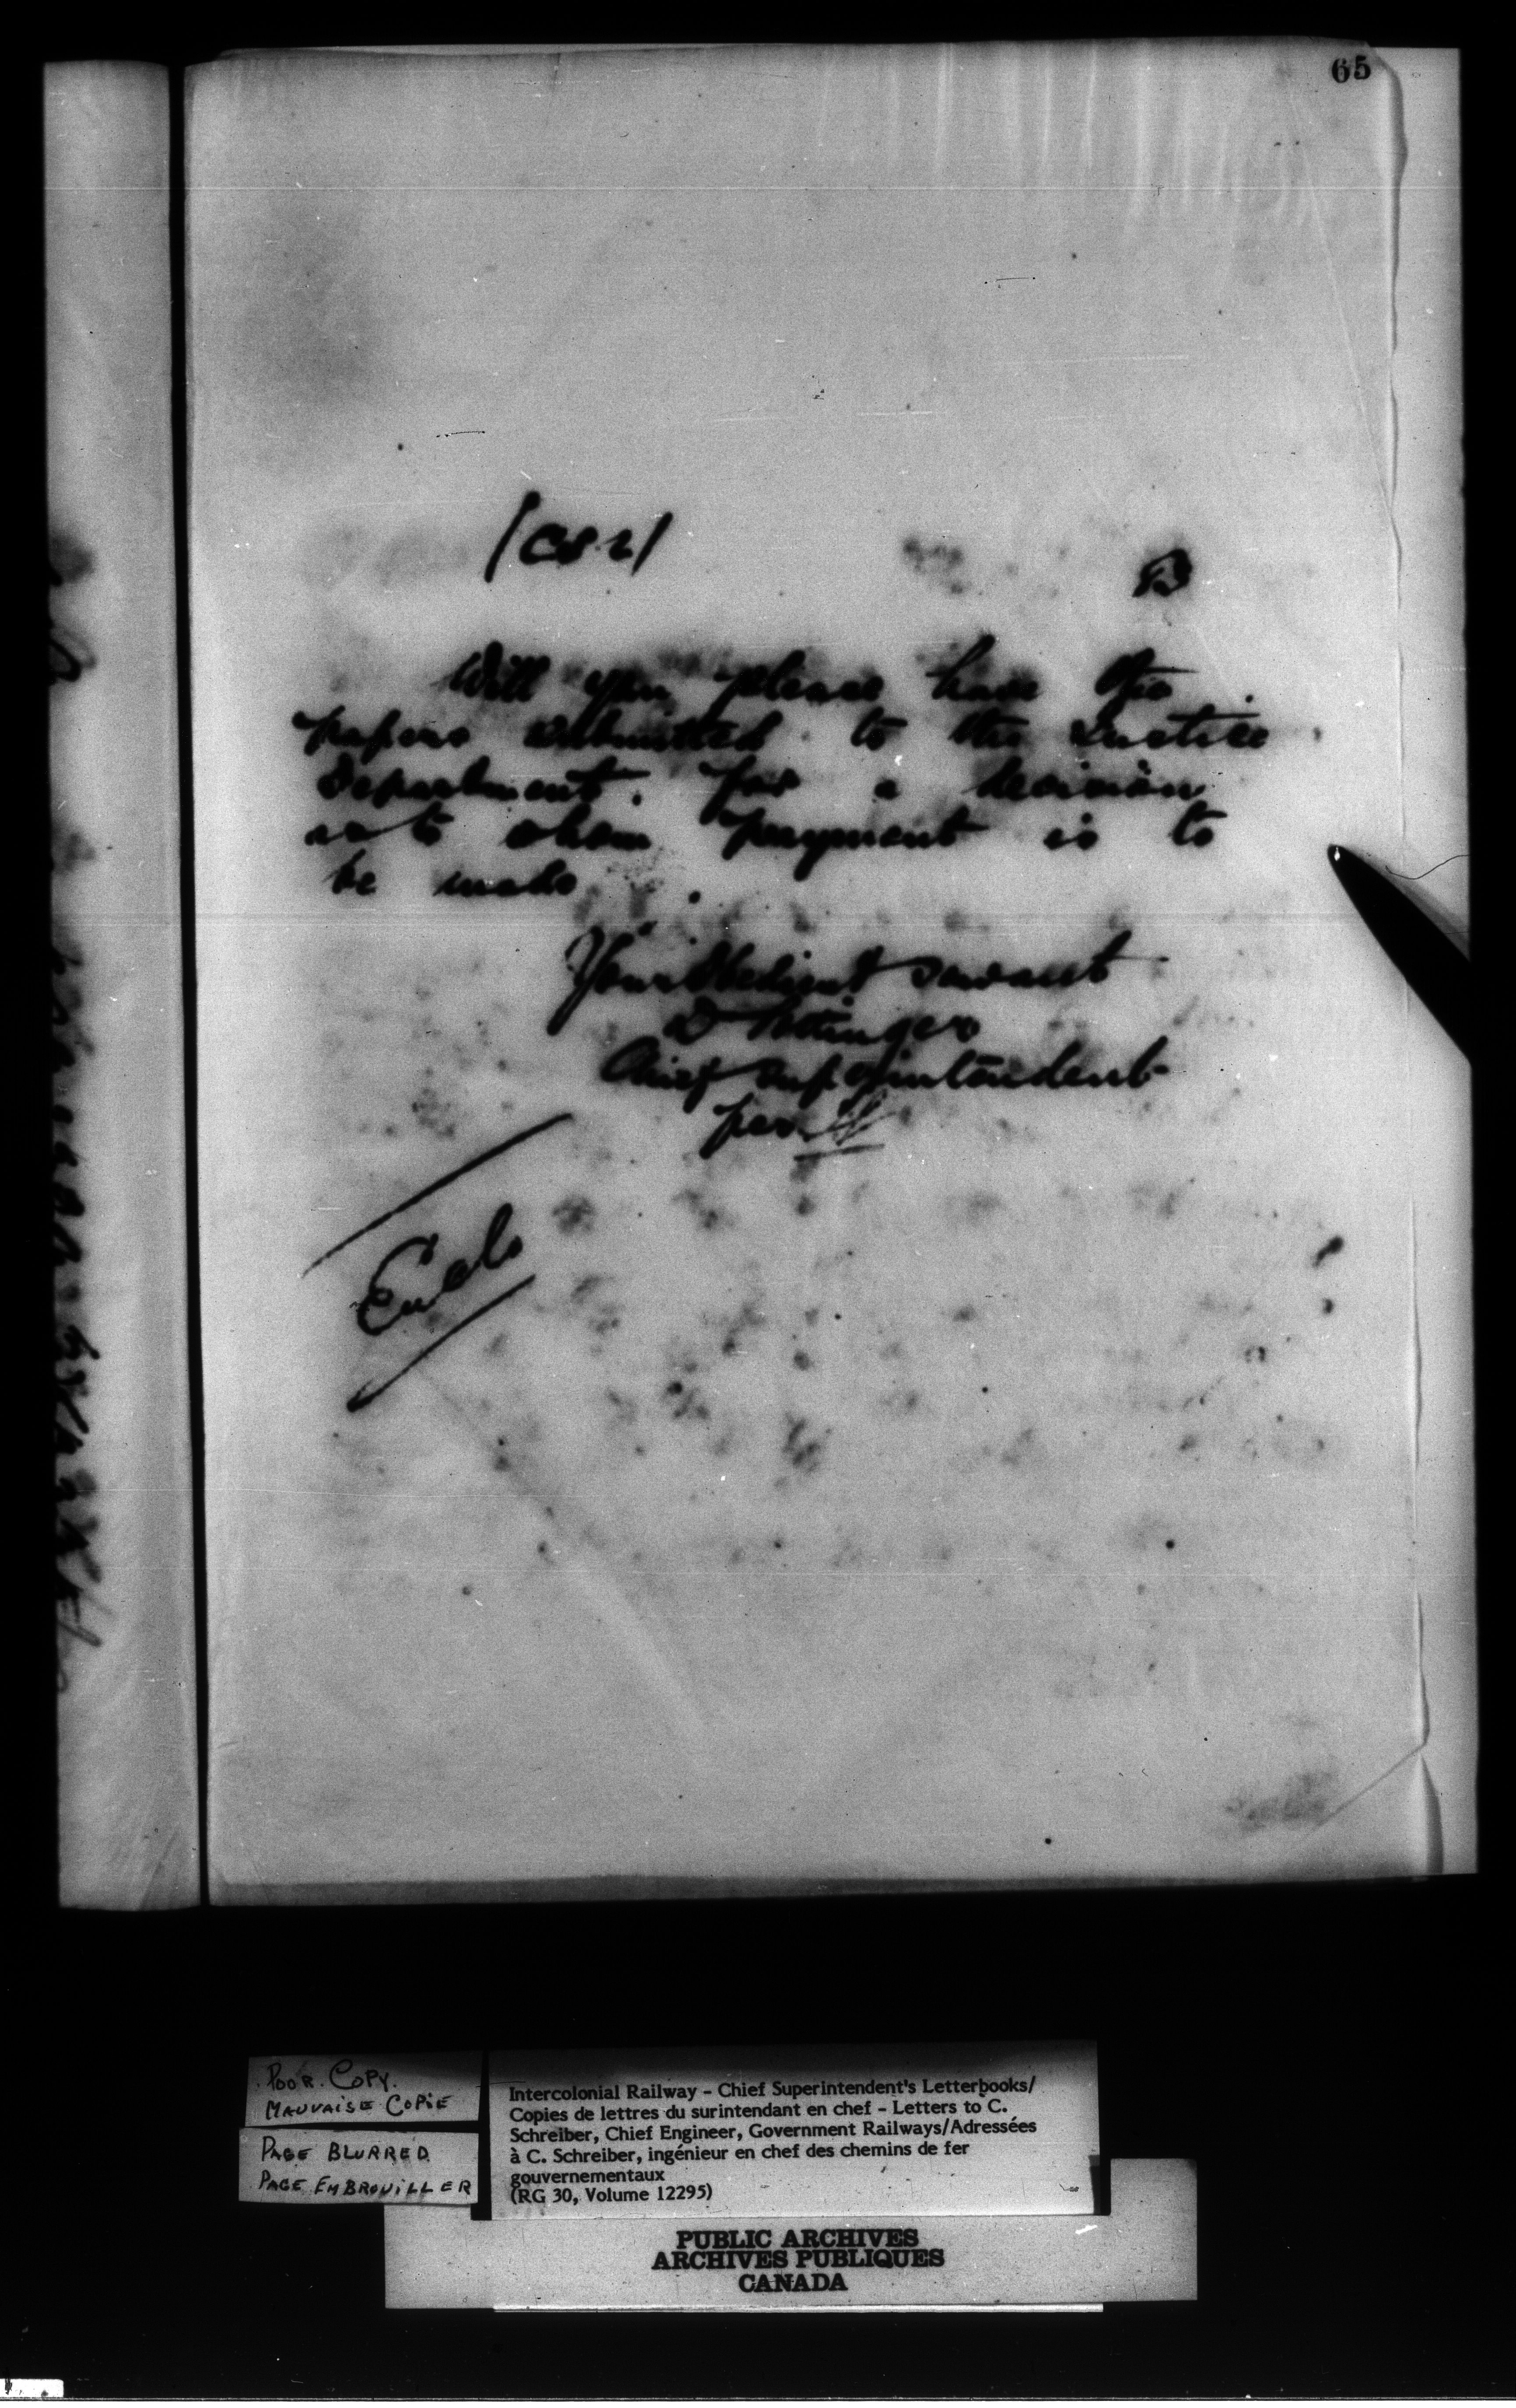 65
Will you please have the
papers submitted to the Justice
Department for a decision
as to whom payment is to
be made
Your Obedient servant
D Pottinger
Chief Superintendent
per
Encls
POOR COPY.
MAUVAISE COPIE
PAGE BLURRED
PAGE EMBROUILLER
Intercolonial Railway – Chief Superintendent's Letterbooks/
Copies de lettres du surintendant en chef – Letters to C.
Schreiber, Chief Engineer, Government Railways/Adressées
à C. Schreiber, ingénieur en chef des chemins de fer
gouvernementaux
(RG 30, Volume 12295)
PUBLIC ARCHIVES
ARCHIVES PUBLIQUES
CANADA